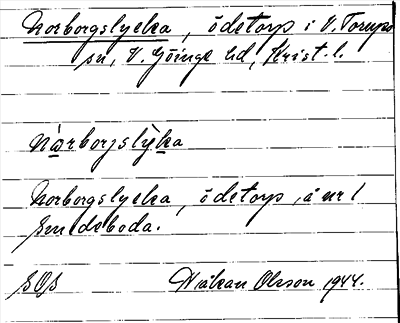 Norborgslycka, ödetorp i V. Torups
sn, V. Göinge hd, Krist. l.
nòrborjslỳka
Norborgslycka, ödetorp, å nr 1
Smedeboda.
SOS Håkan Olsson 1944.